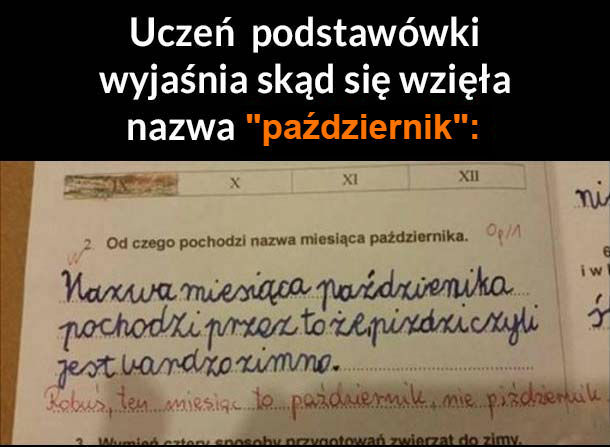 Uczeń podstawówki
wyjaśnia skąd się wzięła
nazwa "październik":
IX X XI XII
2. Od czego pochodzi nazwa miesiąca października. 0p/1
Nazwa miesiąca paździenika
pochodzi przez to że piździ czyli
jest bardzo zimno.
Robuś, ten miesiąc to październik, nie piździernik.
3. Wymień cztery sposoby przygotowań zwierząt do zimy.
ni
6
i w
ś